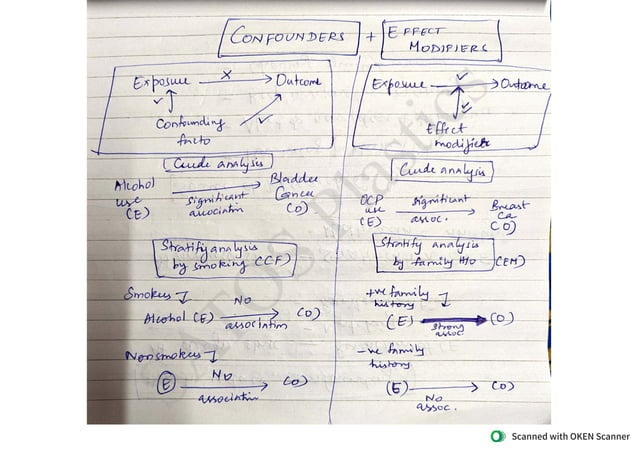 CONFOUNDERS + EFFECT MODIFIERS
Exposure X Outcome
Confounding
facto
Crude analysis
Alcohol
use
(E)
Significant
association
Bladder
Cancer
(O)
Stratify analysis
by smoking (CF)
Smokers
Alcohol (E) No association (O)
Nonsmokers
(E) No association (O)
Exposure Outcome
Effect
modifier
Crude analysis
OCP
use
(E)
significant
assoc.
Breast
Ca
(O)
Stratify analysis
by family H/o (EM)
+ve family
history
(E) Strong assoc. (O)
-ve family
history
(E) No assoc. (O)
Scanned with OKEN Scanner